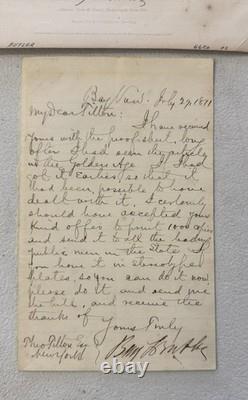 BUTLER
Bay View. July 27. 1871
My Dear Tilton:
I have received
yours with the proof sheet, long
after I had seen the article
in the Golden Age. If I had
got it earlier so that it
had been possible to have
dealt with it, I certainly
should have accepted your
kind offer to print 1000 copies
and send it to all the leading
public men in the State. If
you have it in stereotype
plates, so you can do it now
please do it and send me
the bill, and receive the
thanks of
Yours Truly
Theo Tilton Esq
New York
Benj F Butler
© worthpoint